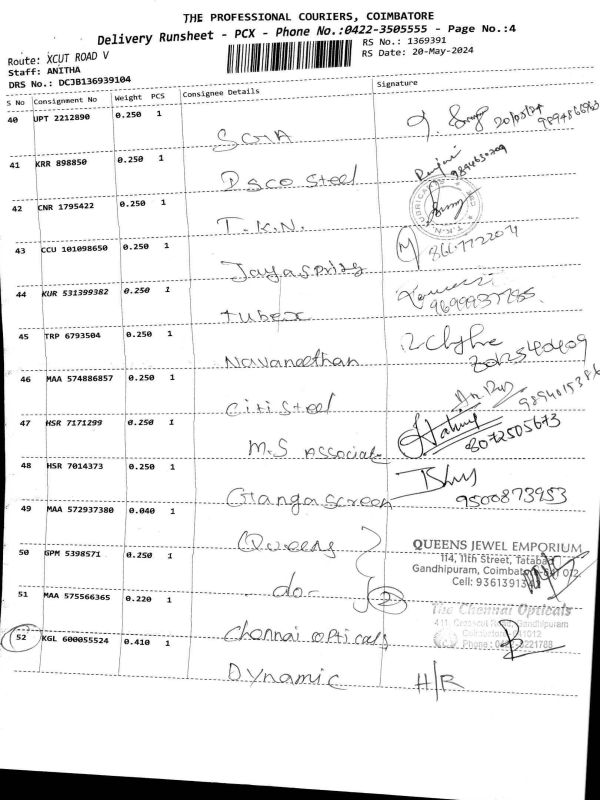 THE PROFESSIONAL COURIERS, COIMBATORE
Delivery Runsheet - PCX - Phone No.:0422-3505555 - Page No.:4
Route: XCUT ROAD V
RS No.: 1369391
Staff: ANITHA
RS Date: 20-May-2024
DRS No.: DCJB136939104
S No Consignment No Weight PCS Consignee Details Signature
40 UPT 2212890 0.250 1
20/05/24
41 KRR 898850 0.250 1 Dsco steel
42 CNR 1795422 0.250 1 T.K.N.
43 CCU 101098650 0.250 1 Jayaspring
44 KUR 531399382 0.250 1 tubex
45 TRP 6793504 0.250 1 Navaneethan
46 MAA 574886857 0.250 1 Citi Steel
47 HSR 7171299 0.250 1 M.S Associate
8072505673
48 HSR 7014373 0.250 1 Ganga screen
9500873953
49 MAA 572937380 0.040 1 Queens
QUEENS JEWEL EMPORIUM
114, 11th Street, Tatabad
Gandhipuram,
50 GPM 5398571 0.250 1 -do-
Cell:
2
51 MAA 575566365 0.220 1 Chennai opticals
The Chennai Opticals
52 KGL 600055524 0.410 1 Dynamic H/R